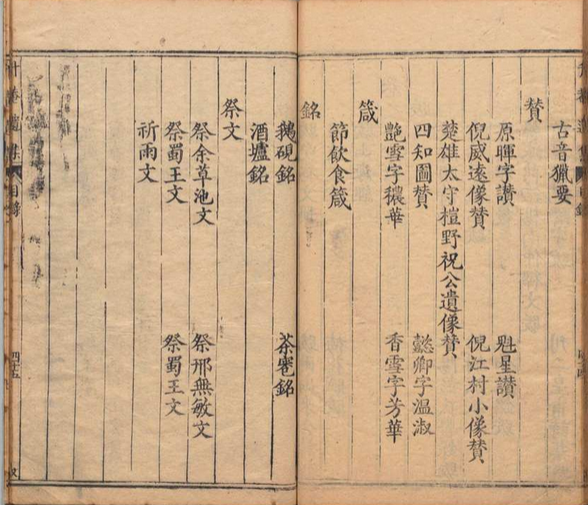 古音獵要
贊
原暉字讃
魁星讃
倪威遠像賛
倪江村小像賛
楚雄太守榿野祝公遺像賛
四知圖賛
懿卿字温淑
艷雪字穠華
香雪字芳華
箴
節飲食箴
銘
鵝硯銘
茶甕銘
酒壚銘
祭文
祭余草池文
祭邢無敏文
祭蜀王文
祭蜀王文
祈雨文
目錄
四十五